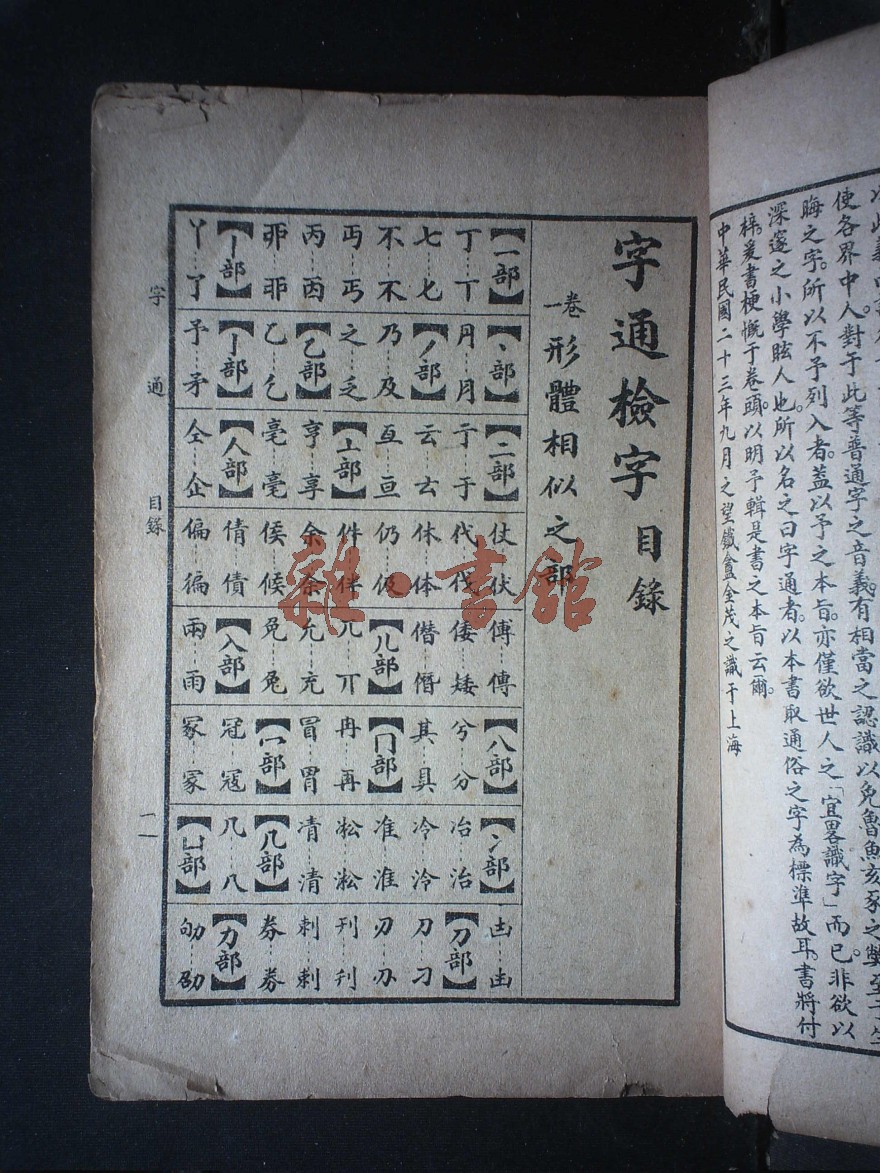 使各界中人。對于此等普通字之音義。有相當之認識。以免魯魚亥豕之弊。至于生
晦之字。所以不予列入者。蓋以予之本旨。亦僅欲世人之「宜畧識字」而已。非欲以
深邃之小學眩人也。所以名之曰字通者。以本書取通俗之字為標準故耳。書將付
梓。爰書梗慨于卷頭。以明予輯是書之本旨云爾。
中華民國二十三年九月之望鐵盦金茂之識于上海
字通檢字目錄
卷一 形體相似之部
【一部】
丁…丅
七…七
不…不
丏…丐
丙…𠀬
【丨部】
丫…了
【丶部】
冃…月
【丿部】
乃…及
之…乏
【乙部】
乙…乞
【亅部】
予…矛
【二部】
亍…于
云…厺
亙…亘
【亠部】
亨…享
亳…毫
【人部】
仝…企
仗…伏
代…伐
休…体
仍…伋
件…伴
余…佘
侯…候
倩…債
偏…徧
傅…傳
倭…矮
僭…僣
【儿部】
兀…丌
允…充
免…兔
【入部】
兩…雨
【八部】
兮…分
其…具
【冂部】
冉…再
冒…胃
【冖部】
冠…寇
冢…家
【冫部】
冶…治
冷…泠
准…淮
凇…淞
凊…清
【几部】
几…八
【凵部】
凷…凼
【刀部】
刀…刁
刃…刅
刊…刋
刺…剌
券…劵
【力部】
劬…劭
字通 目錄
一一
雜·書館